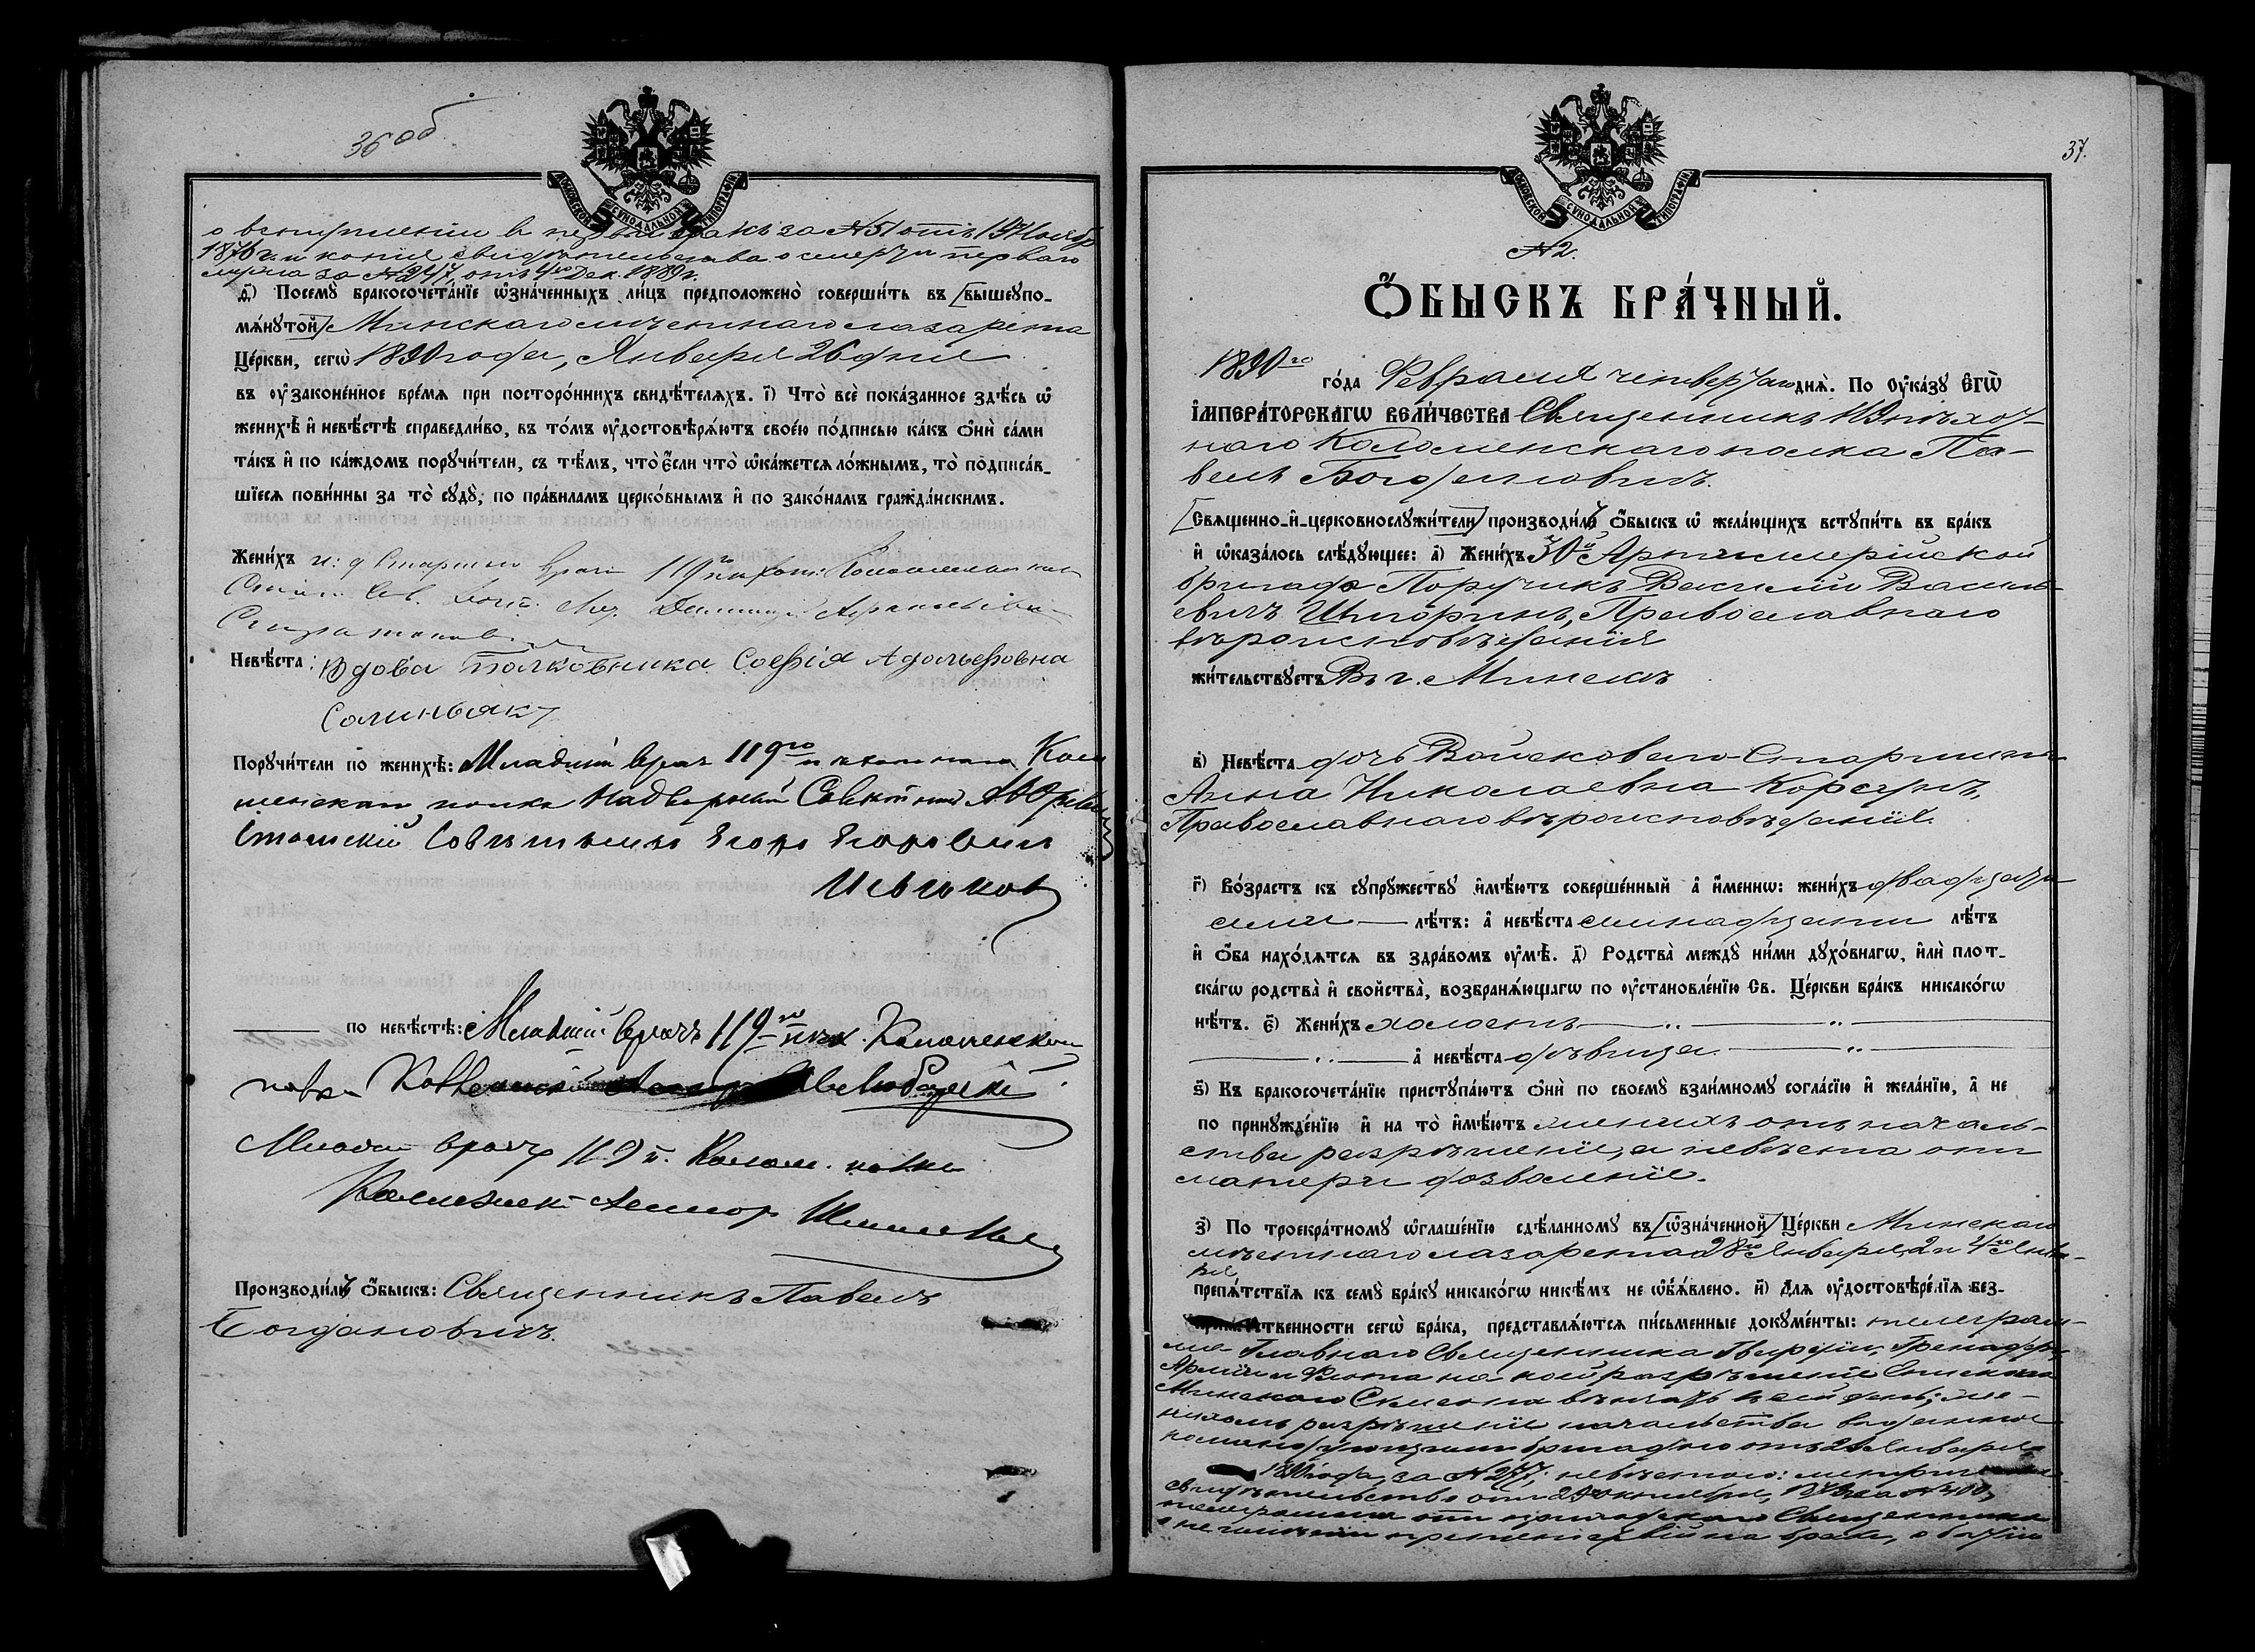 36 об
МОСКОВСКОЙ СѴНОДАЛЬНОЙ ТИПОГРАФІИ
о вступленіи в первый бракъ за №51 отъ 13 Ноябр
1876 г. и копія свидѣтельства о смерти перваго
мужа за №247, отъ 4го Дек. 1889 г.
Посемꙋ̀ бракосочета́нїе ѡ҆зна́ченныхъ ли́цъ предположено̀ соверши́ть въ [вышеꙋпо-
мѧ́нꙋтой] Минскаго мѣстнаго лазарета
Це́ркви, сегѡ̀ 1890 года, Января 26 дня
въ ᲂу҆законе́нное вре́мѧ при посторо́ннихъ свидѣ́телѧхъ. і҃) Что̀ всѐ пока́занное здѣ́сь ѡ҆
женихѣ̀ и҆ невѣ́стѣ справедли́во, въ то́мъ ᲂу҆достовѣрѧ́ютъ свое́ю по́дписью ка́къ ѻ҆нѝ са́ми
та́къ и҆ по ка́ждомъ порꙋчи́тели, съ тѣ́мъ, что̀ є҆́сли что̀ ѡ҆ка́жетсѧ ло́жнымъ, то̀ подписа́в-
шїесѧ пови́нны за то̀ сꙋдꙋ̀, по пра́виламъ церко́внымъ и҆ по зако́намъ гражда́нскимъ.
Жени́хъ и: д Старшаго врача 119го пѣхот: Коломенскаго
Невѣ́ста: Вдова Полковника Софія Адольфовна
Солиньякъ
Порꙋчи́тели по женихѣ̀: Младшій врачъ 119го пѣхотнаго Коло
менскаго полка Надворный Совѣтникъ
Статскій Совѣтникъ Егоръ Егоровичъ
по невѣ́стѣ: Младшій врачъ 119го пѣх. Коломенскаго
полка
Младш врачъ 119 п. Колом. полка
Производи́лъ ѻ҆́быскъ: Священникъ Павелъ
Богдановичъ.
37.
МОСКОВСКОЙ СѴНОДАЛЬНОЙ ТИПОГРАФІИ
№2.
Ѻ҆́БЫСКЪ БРА́ЧНЫЙ.
1890го го́да Февраля четвертаго днѧ̀. По ᲂу҆ка́зꙋ Є҆ГѠ̀
І҆МПЕРА́ТОРСКАГѠ ВЕЛИ́ЧЕСТВА Священникъ 119 пѣхот-
наго Коломенскаго полка Па-
велъ Богдановичъ.
[Свѧщенно-и҆-церковнослꙋжи́тели] производи́лъ ѻ҆́быскъ ѡ҆ жела́ющихъ встꙋпи́ть въ бра́къ
и҆ ѡ҆каза́лось слѣ́дꙋющее: а҃) Жени́хъ 30й Артиллерійской
бригады Поручикъ Василій Василь-
евичъ Шпоринъ, Православнаго
вѣроисповѣданія
жи́тельствꙋетъ Въ г. Минскѣ
в҃) Невѣ́ста дочь Войсковаго Старшины
Анна Николаевна Корсунъ,
Православнаго вѣроисповѣданія.
г҃) Во́зрастъ къ сꙋпрꙋ́жествꙋ и҆мѣ́ютъ соверше́нный а҆ и҆́меннѡ: жени́хъ двадцати
семи лѣ́тъ: а҆ невѣ́ста семнадцати лѣ́тъ
и҆ ѻ҆́ба нахо́дѧтсѧ въ здра́вомъ ᲂу҆мѣ̀. д҃) Родства̀ междꙋ̀ ни́ми дꙋхо́внагѡ, и҆лѝ плот-
ска́гѡ родства̀ и҆ сво́йства̀, возбранѧ́ющагѡ по ᲂу҆становле́нїю Св. Це́ркви бра́къ никако́гѡ
нѣ́тъ. є҃) Жени́хъ холостъ
а҆ невѣ́ста дѣвица
ѕ҃) Къ бракосочета́нїю пристꙋпа́ютъ ѻ҆нѝ по своемꙋ̀ взаи́мномꙋ согла́сїю и҆ жела́нїю, а҆ не
по принꙋжде́нїю и҆ на то̀ и҆мѣ́ютъ женихъ отъ началь-
ства разрѣшеніе, а невѣста отъ
матери дозволеніе.
з҃) По троекра́тномꙋ ѡ҆глаше́нїю сдѣ́ланномꙋ въ [ѡ҆зна́ченной] Це́ркви Минскаго
мѣстнаго лазарета 28го Января, 2 и 4го Янва-
ря
препѧ́тствїѧ къ семꙋ̀ бра́кꙋ никако́гѡ никѣ́мъ не ѡ҆бъѧ́влено. и҃) Длѧ ᲂу҆достовѣре́нїѧ без-
ственности сегѡ̀ бра́ка, представлѧ́ютсѧ пи́сьменные докꙋме́нты: телеграм-
ма Главнаго Священника Гвардіи, Гренадер,
Арміи и Флота на кой разрѣшеніе Епископа
Минскаго Симеона вѣнчать въ сей день; же-
нихомъ разрѣшеніе начальства выданное
командующимъ бригадою отъ 21 Января
1890 года, за №277; невѣстою: метрич
свидѣтельство отъ 29 октября, за №400,
телеграмма отъ приходскаго Священника
о неимѣніи препятствій на бракъ, о бытіи